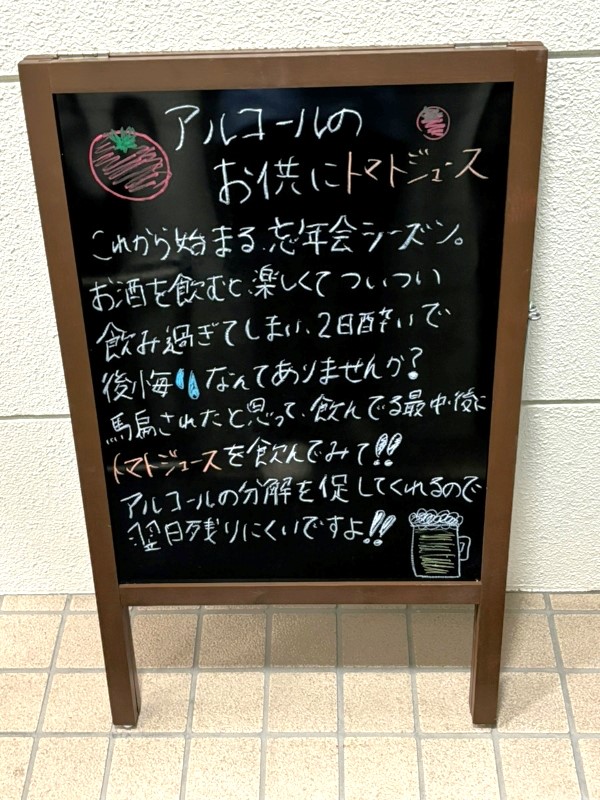 アルコールの
お供にトマトジュース
これから始まる忘年会シーズン。
お酒を飲むと楽しくてついつい
飲み過ぎてしまい、2日酔いで
後悔なんてありませんか?
馬扁されたと思って、飲んでる最中・後に
トマトジュースを飲んでみて!!
アルコールの分解を促してくれるので
翌日残りにくいですよ!!